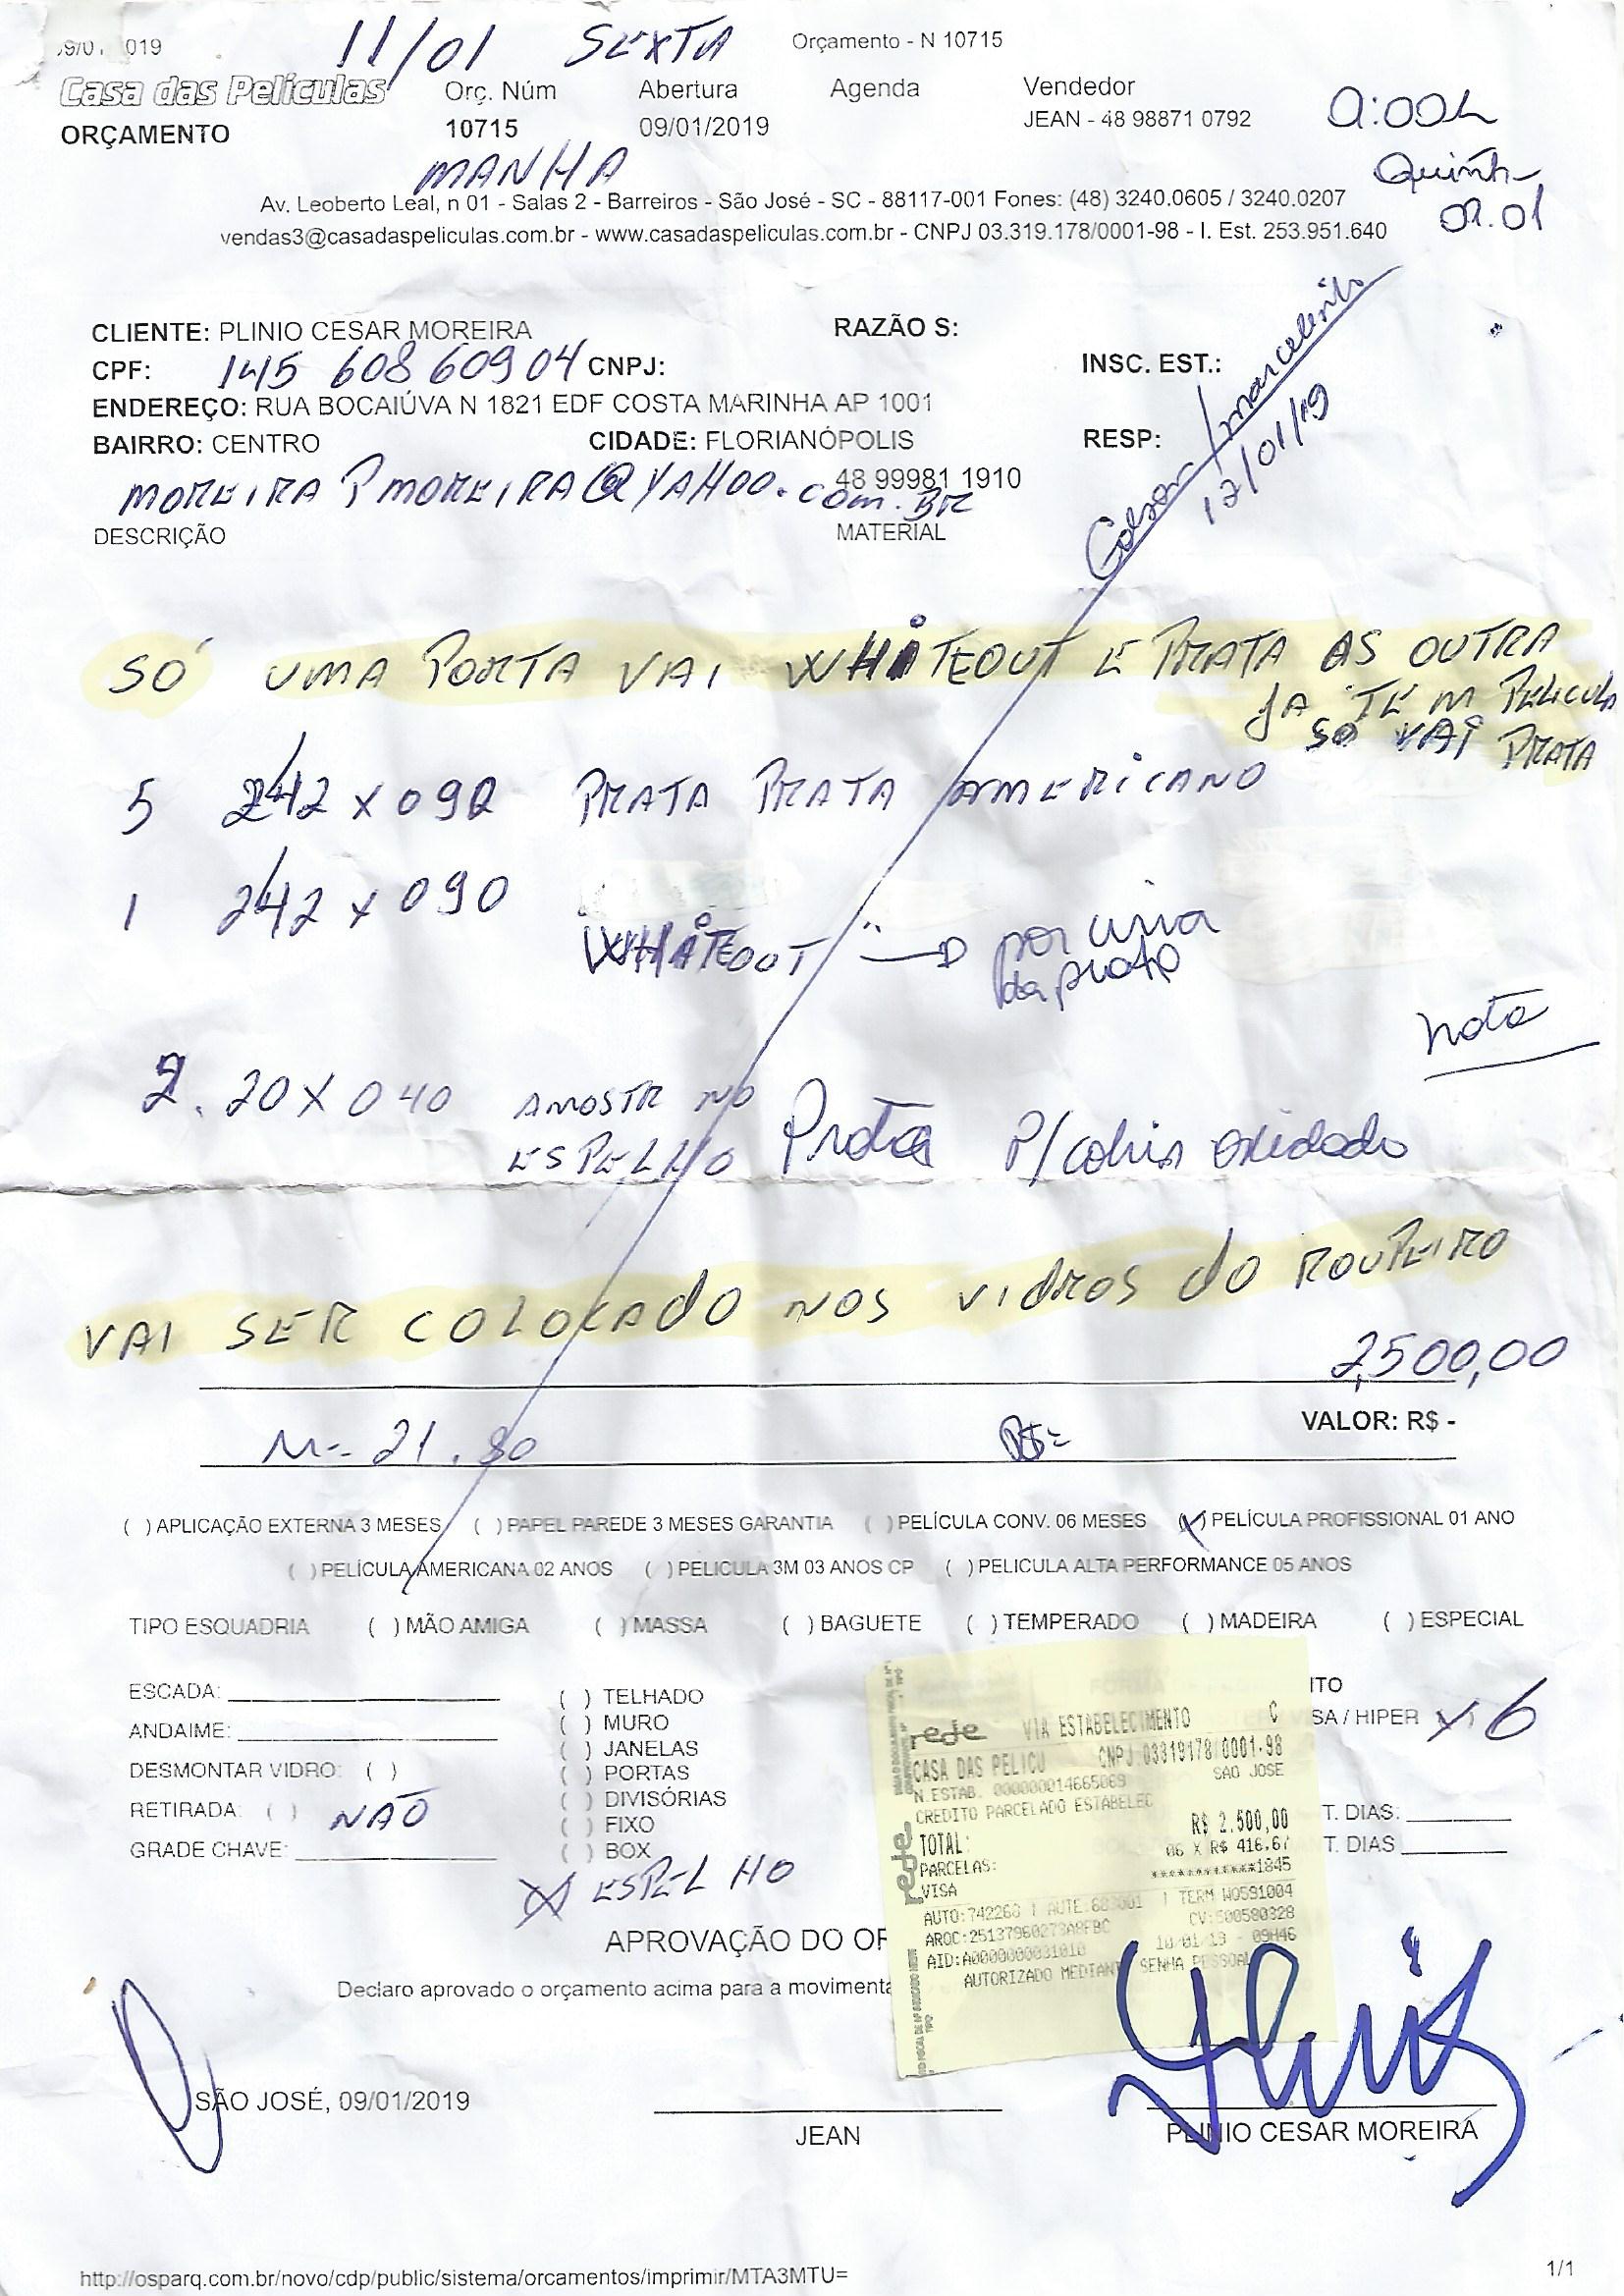 019
11/01 SEXTA
Orçamento - N 10715
Casa das Películas
Orç. Núm Abertura Agenda Vendedor
ORÇAMENTO
10715 09/01/2019 JEAN - 48 98871 0792
MANHA
Quinta
Av. Leoberto Leal, n 01 - Salas 2 - Barreiros - São José - SC - 88117-001 Fones: (48) 3240.0605 / 3240.0207
vendas3@casadaspeliculas.com.br - www.casadaspeliculas.com.br - CNPJ 03.319.178/0001-98 - I. Est. 253.951.640
CLIENTE: PLINIO CESAR MOREIRA RAZÃO S:
CPF: 145 608 609 04 CNPJ: INSC. EST.:
ENDEREÇO: RUA BOCAIÚVA N 1821 EDF COSTA MARINHA AP 1001
BAIRRO: CENTRO CIDADE: FLORIANÓPOLIS RESP:
48 99981 1910
MOREIRA PMOREIRA@YAHOO.com.BR
DESCRIÇÃO MATERIAL
SÓ UMA PORTA VAI WHITEOUT E PRATA AS OUTRA
JA TEM PELICULA
SO VAI PRATA
5 242 x 090 PRATA PRATA AMERICANO
1 242 x 090
WHITEOUT por cima
da prata
nota
2. 20 X 040 AMOSTR NO
ESPELHO Prata P/cobrir oxidado
VAI SER COLOCADO NOS VIDROS dO ROUPEIRO
2,500,00
VALOR: R$ -
M- 21.80 R$=
( ) APLICAÇÃO EXTERNA 3 MESES ( ) PAPEL PAREDE 3 MESES GARANTIA ( ) PELÍCULA CONV. 06 MESES (X) PELÍCULA PROFISSIONAL 01 ANO
( ) PELÍCULA AMERICANA 02 ANOS ( ) PELICULA 3M 03 ANOS CP ( ) PELICULA ALTA PERFORMANCE 05 ANOS
TIPO ESQUADRIA ( ) MÃO AMIGA ( ) MASSA ( ) BAGUETE ( ) TEMPERADO ( ) MADEIRA ( ) ESPECIAL
ESCADA:
ANDAIME:
DESMONTAR VIDRO: ( )
RETIRADA: ( ) NÃO
GRADE CHAVE:
( ) TELHADO
( ) MURO
( ) JANELAS
( ) PORTAS
( ) DIVISÓRIAS
( ) FIXO
( ) BOX
X ESPELHO
ITO
SA / HIPER X 6
T. DIAS:
T. DIAS
rede VIA ESTABELECIMENTO C
CASA DAS PELICU CNPJ 03319178/0001-98
N.ESTAB. 000000014665069 SAO JOSE
CREDITO PARCELADO ESTABELEC
TOTAL: R$ 2.500,00
PARCELAS: 06 X R$ 416,67
VISA ************1845
AUTO:742260 TERM W0591004
CV:500580328
AID:A0000000031010 10/01/19 - 09H46
AUTORIZADO MEDIANT SENHA PESSOAL
APROVAÇÃO DO OR
Declaro aprovado o orçamento acima para a movimenta
SÃO JOSÉ, 09/01/2019
JEAN
PLINIO CESAR MOREIRA
http://osparq.com.br/novo/cdp/public/sistema/orcamentos/imprimir/MTA3MTU=
1/1